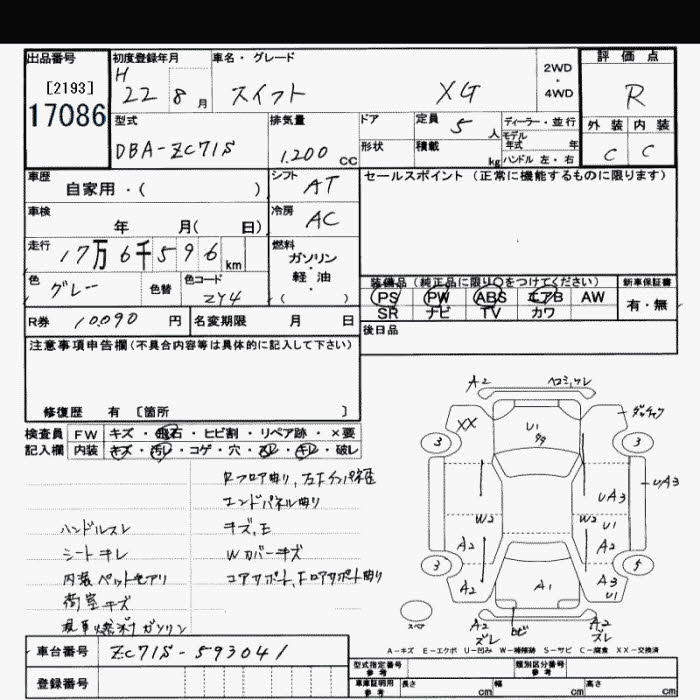 出品番号
[2193]
17086
初度登録年月
H
22 8 月
車名・グレード
スイフト XG
2WD
・
4WD
評価点
R
外装 内装
C C
型式
DBA-ZC71S
排気量
1.200 CC
ドア
形状
定員 5 人
積載 kg
ディーラー・並行
モデル
年式 年
ハンドル 左・右
車歴
自家用・( )
シフト AT
セールスポイント (正常に機能するものに限ります)
車検
年 月( 日)
冷房 AC
走行
17万6千596 km
燃料
ガソリン
・
軽・油
( )
色 グレー
色替
色コード ZY4
装備品 (純正品に限り○をつけてください)
PS PW ABS エアB AW
SR ナビ TV カワ
新車保証書
有・無
R券 10090 円
名変期限 月 日
後日品
注意事項申告欄(不具合内容等は具体的に記入して下さい)
修復歴 有 [箇所 ]
検査員 FW キズ・飛石・ヒビ割・リペア跡・×要
記入欄 内装 キズ・汚レ・コゲ・穴・スレ・キレ・破レ
Rフロア曲り,
エンドパネル曲り
ハンドルスレ キズ,E
シートキレ Wカバーキズ
内装ペットモアリ コアサポート,
荷室キズ
ガソリン
A2
XX
U1
3
3
UA3
UA3
W2
W2
U1
A2
A2
3
5
A2
A1
A3
U1
スペア
A2
ズレ
サビ
A2
ズレ
A-キズ E-エクボ U-凹み W-補修跡 S-サビ C-腐食 XX-交換済
車台番号 ZC71S-593041
登録番号
型式指定番号
参考
類別区分番号
参考
車庫証明用
参考
長さ cm
幅 cm
高さ cm